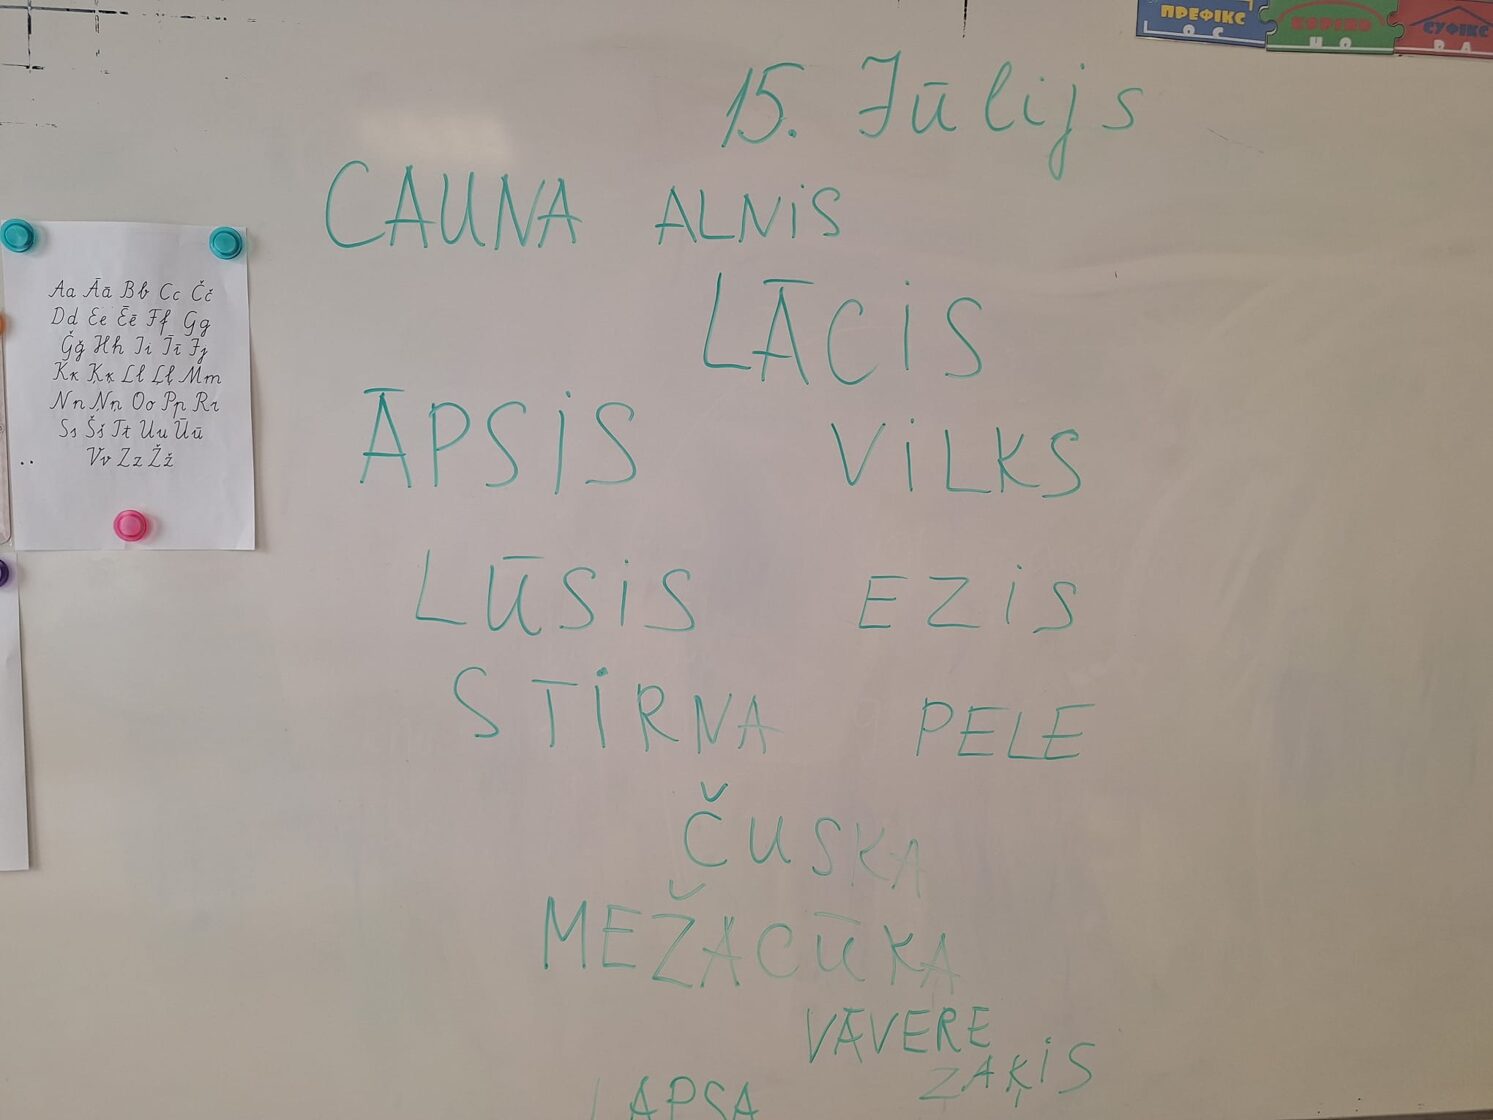 ПРЕФІКС КОРІНЬ СУФІКС
15. Jūlijs
CAUNA ALNiS
LĀCiS
ĀPSiS ViLKS
LŪSiS EZiS
STiRNA PELE
ČUSKA
MEŽACŪKA
VĀVERE
ZAĶiS
LAPSA
Aa Āā Bb Cc Čč
Dd Ee Ēē Ff Gg
Ģģ Hh Ii Īī Jj
Kk Ķķ Ll Ļļ Mm
Nn Ņņ Oo Pp Rr
Ss Šš Tt Uu Ūū
Vv Zz Žž